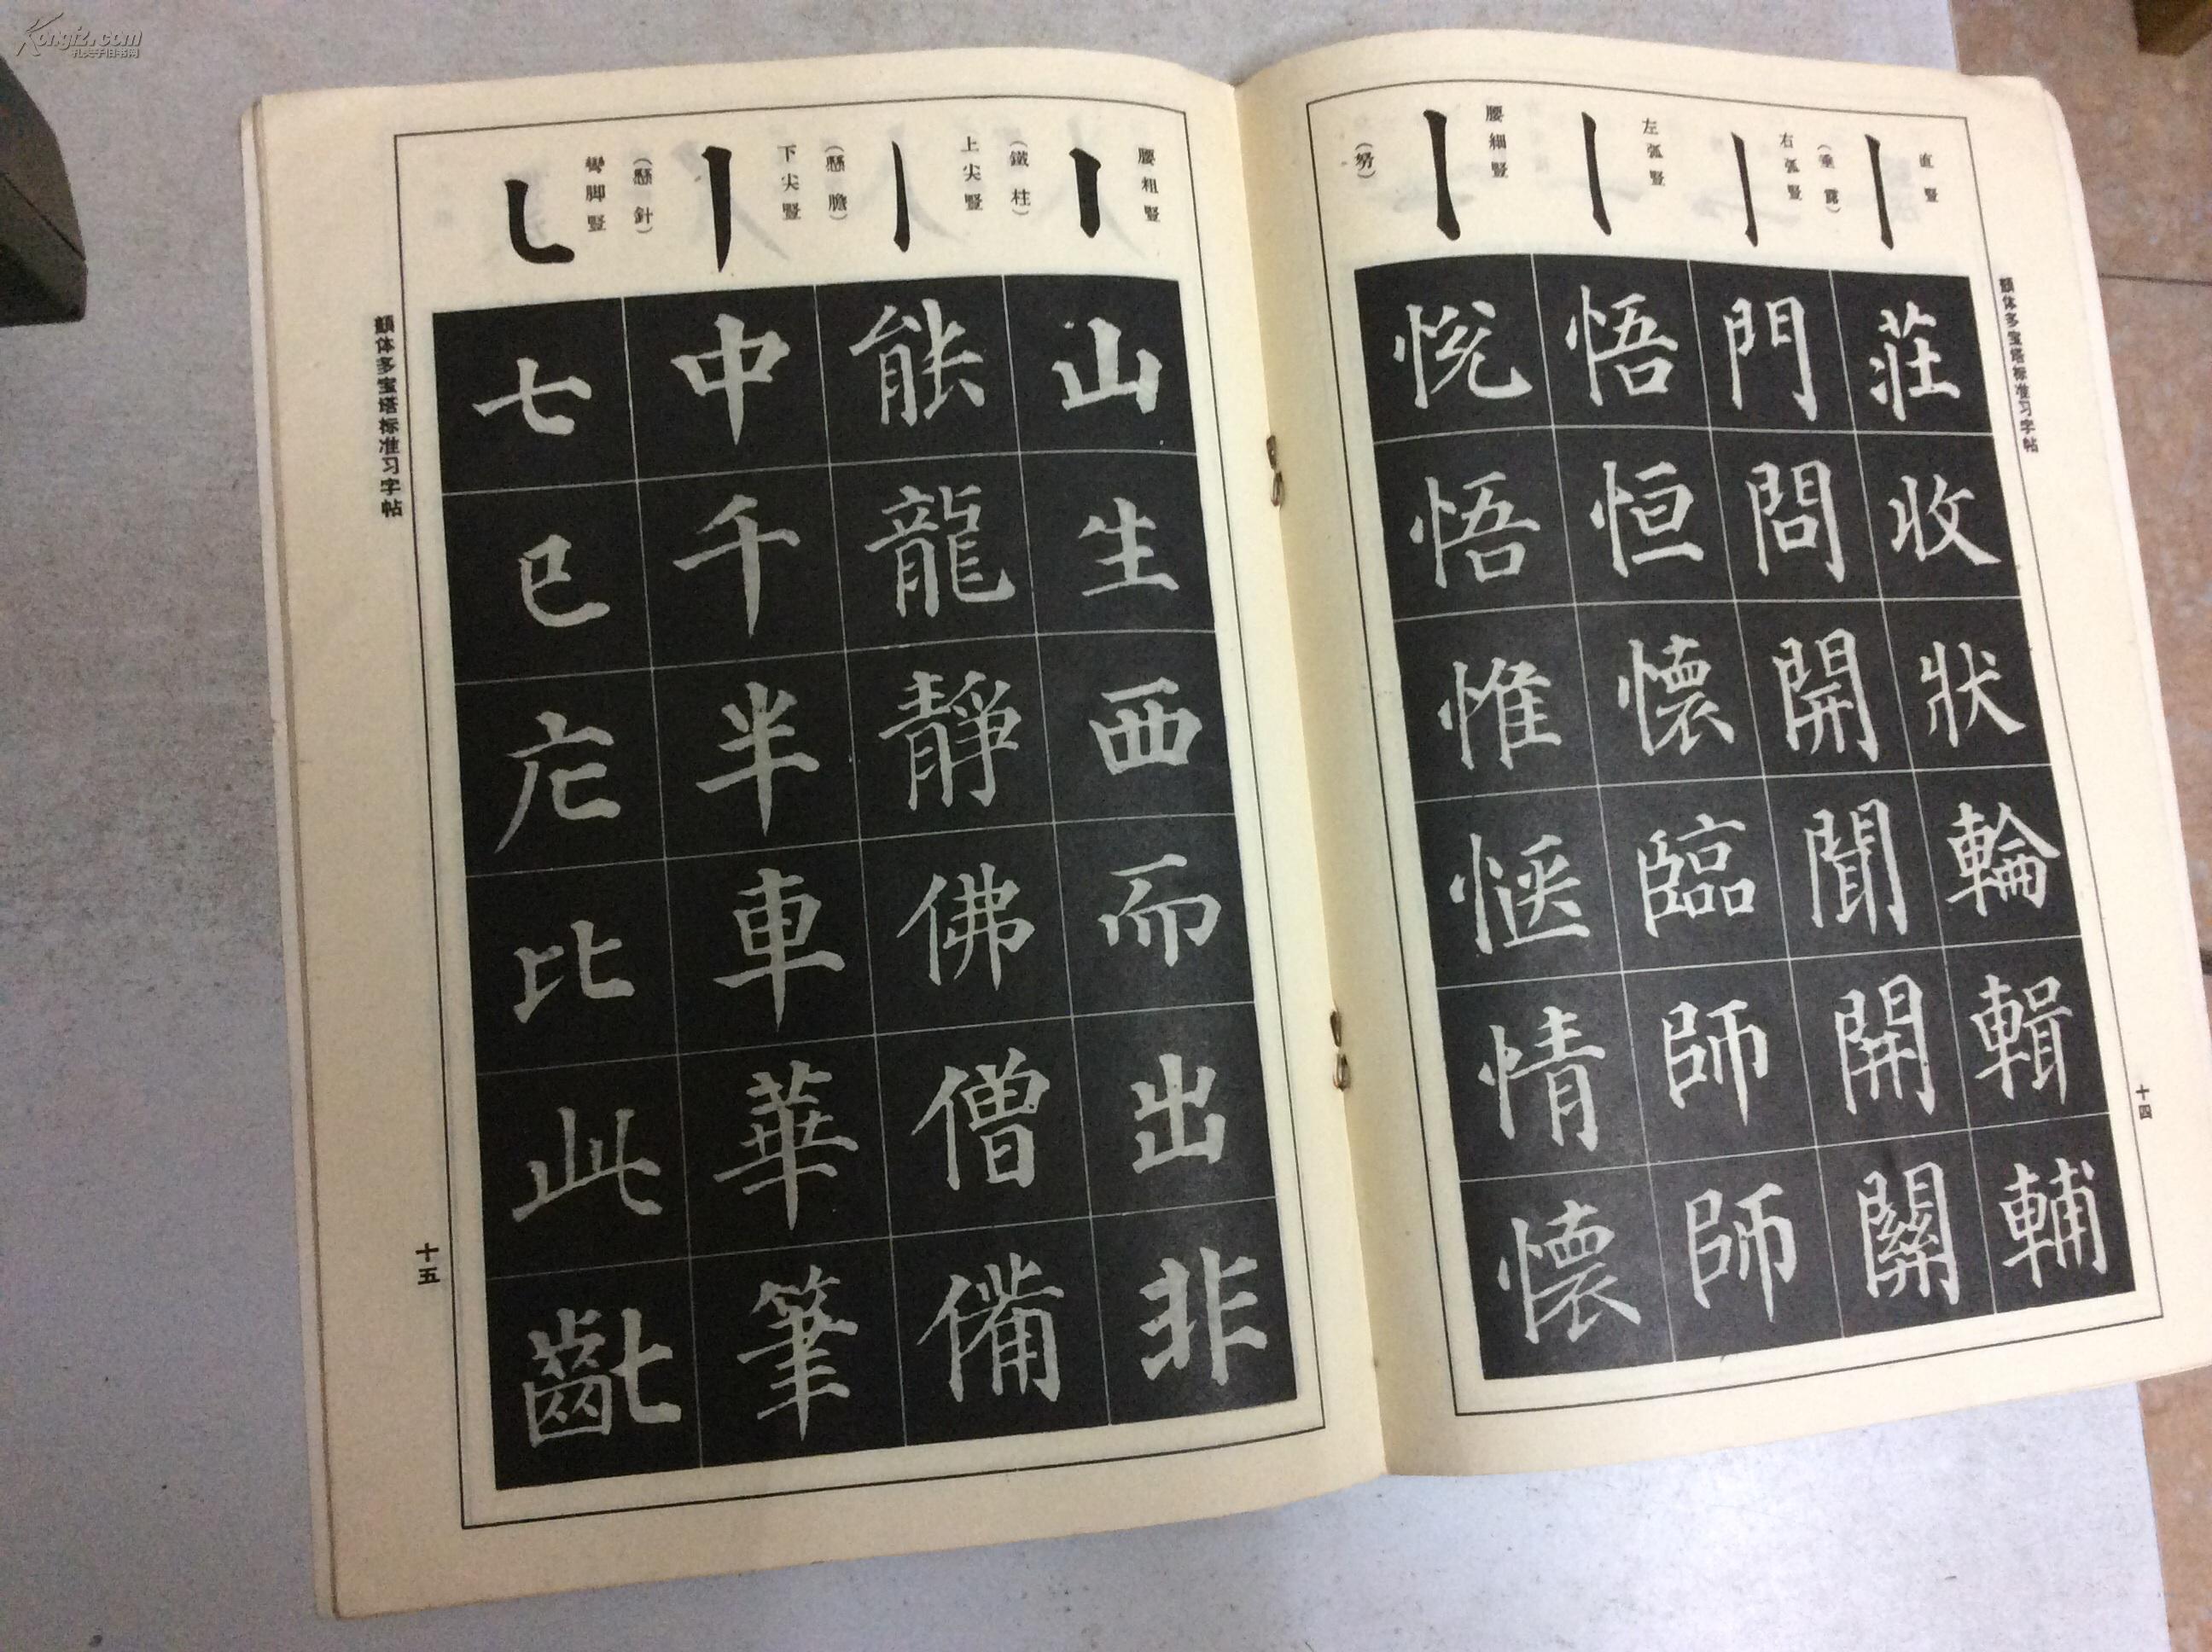 顏体多宝塔标准习字帖
十四
直豎
(垂露)
右弧豎
左弧豎
腰細豎
(努)
莊收狀輪輯輔
門問開聞開關
悟恒懷臨師師
悅悟惟愜情懷
腰粗豎
(鐵柱)
上尖豎
(懸膽)
下尖豎
(懸針)
彎脚豎
山生西而出非
能龍靜佛僧備
中千半車華筆
七已庀比此齔
顏体多宝塔标准习字帖
十五
Kongfz.com
孔夫子旧书网